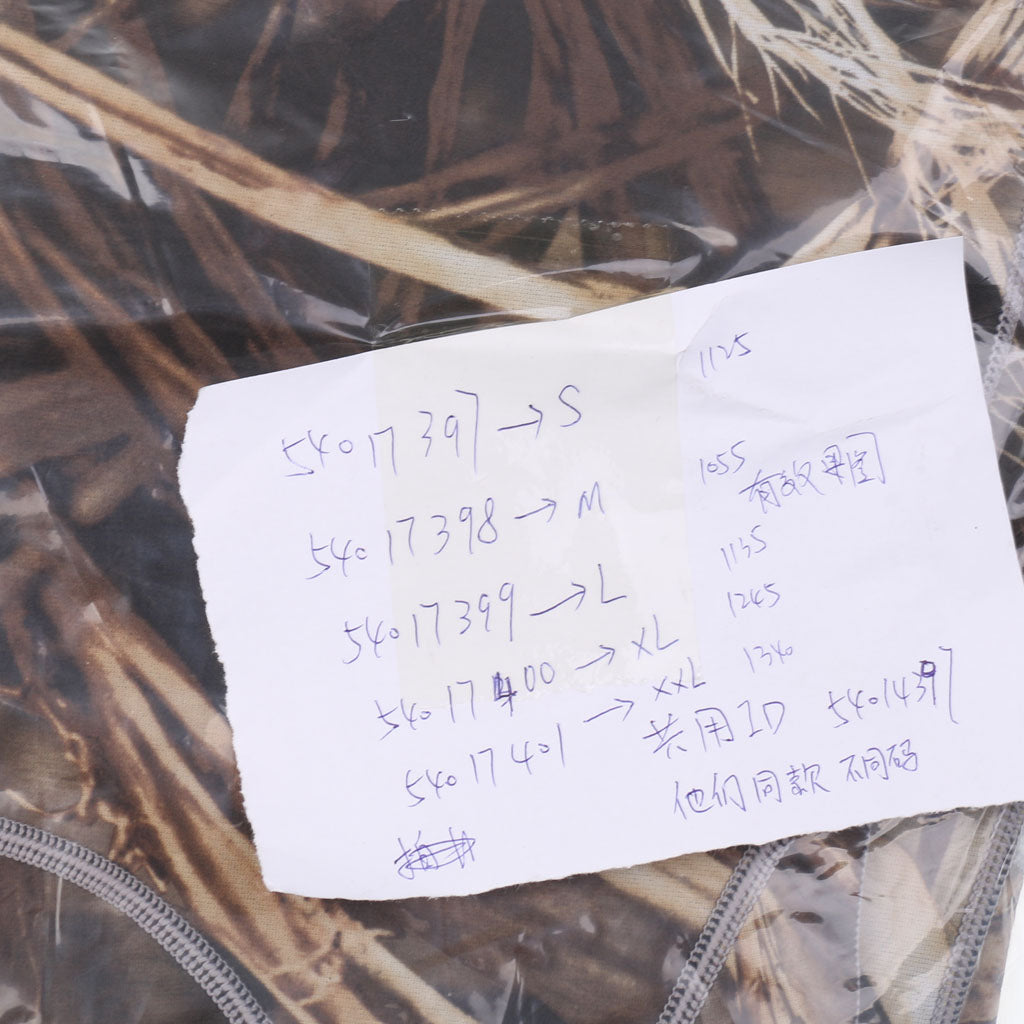 1125
54017397→S
1055
有效果图
54017398→M
1135
54017399→L
1245
54017400→XL
1340
54017401→XXL
共用ID 54014397
他们同款不同码